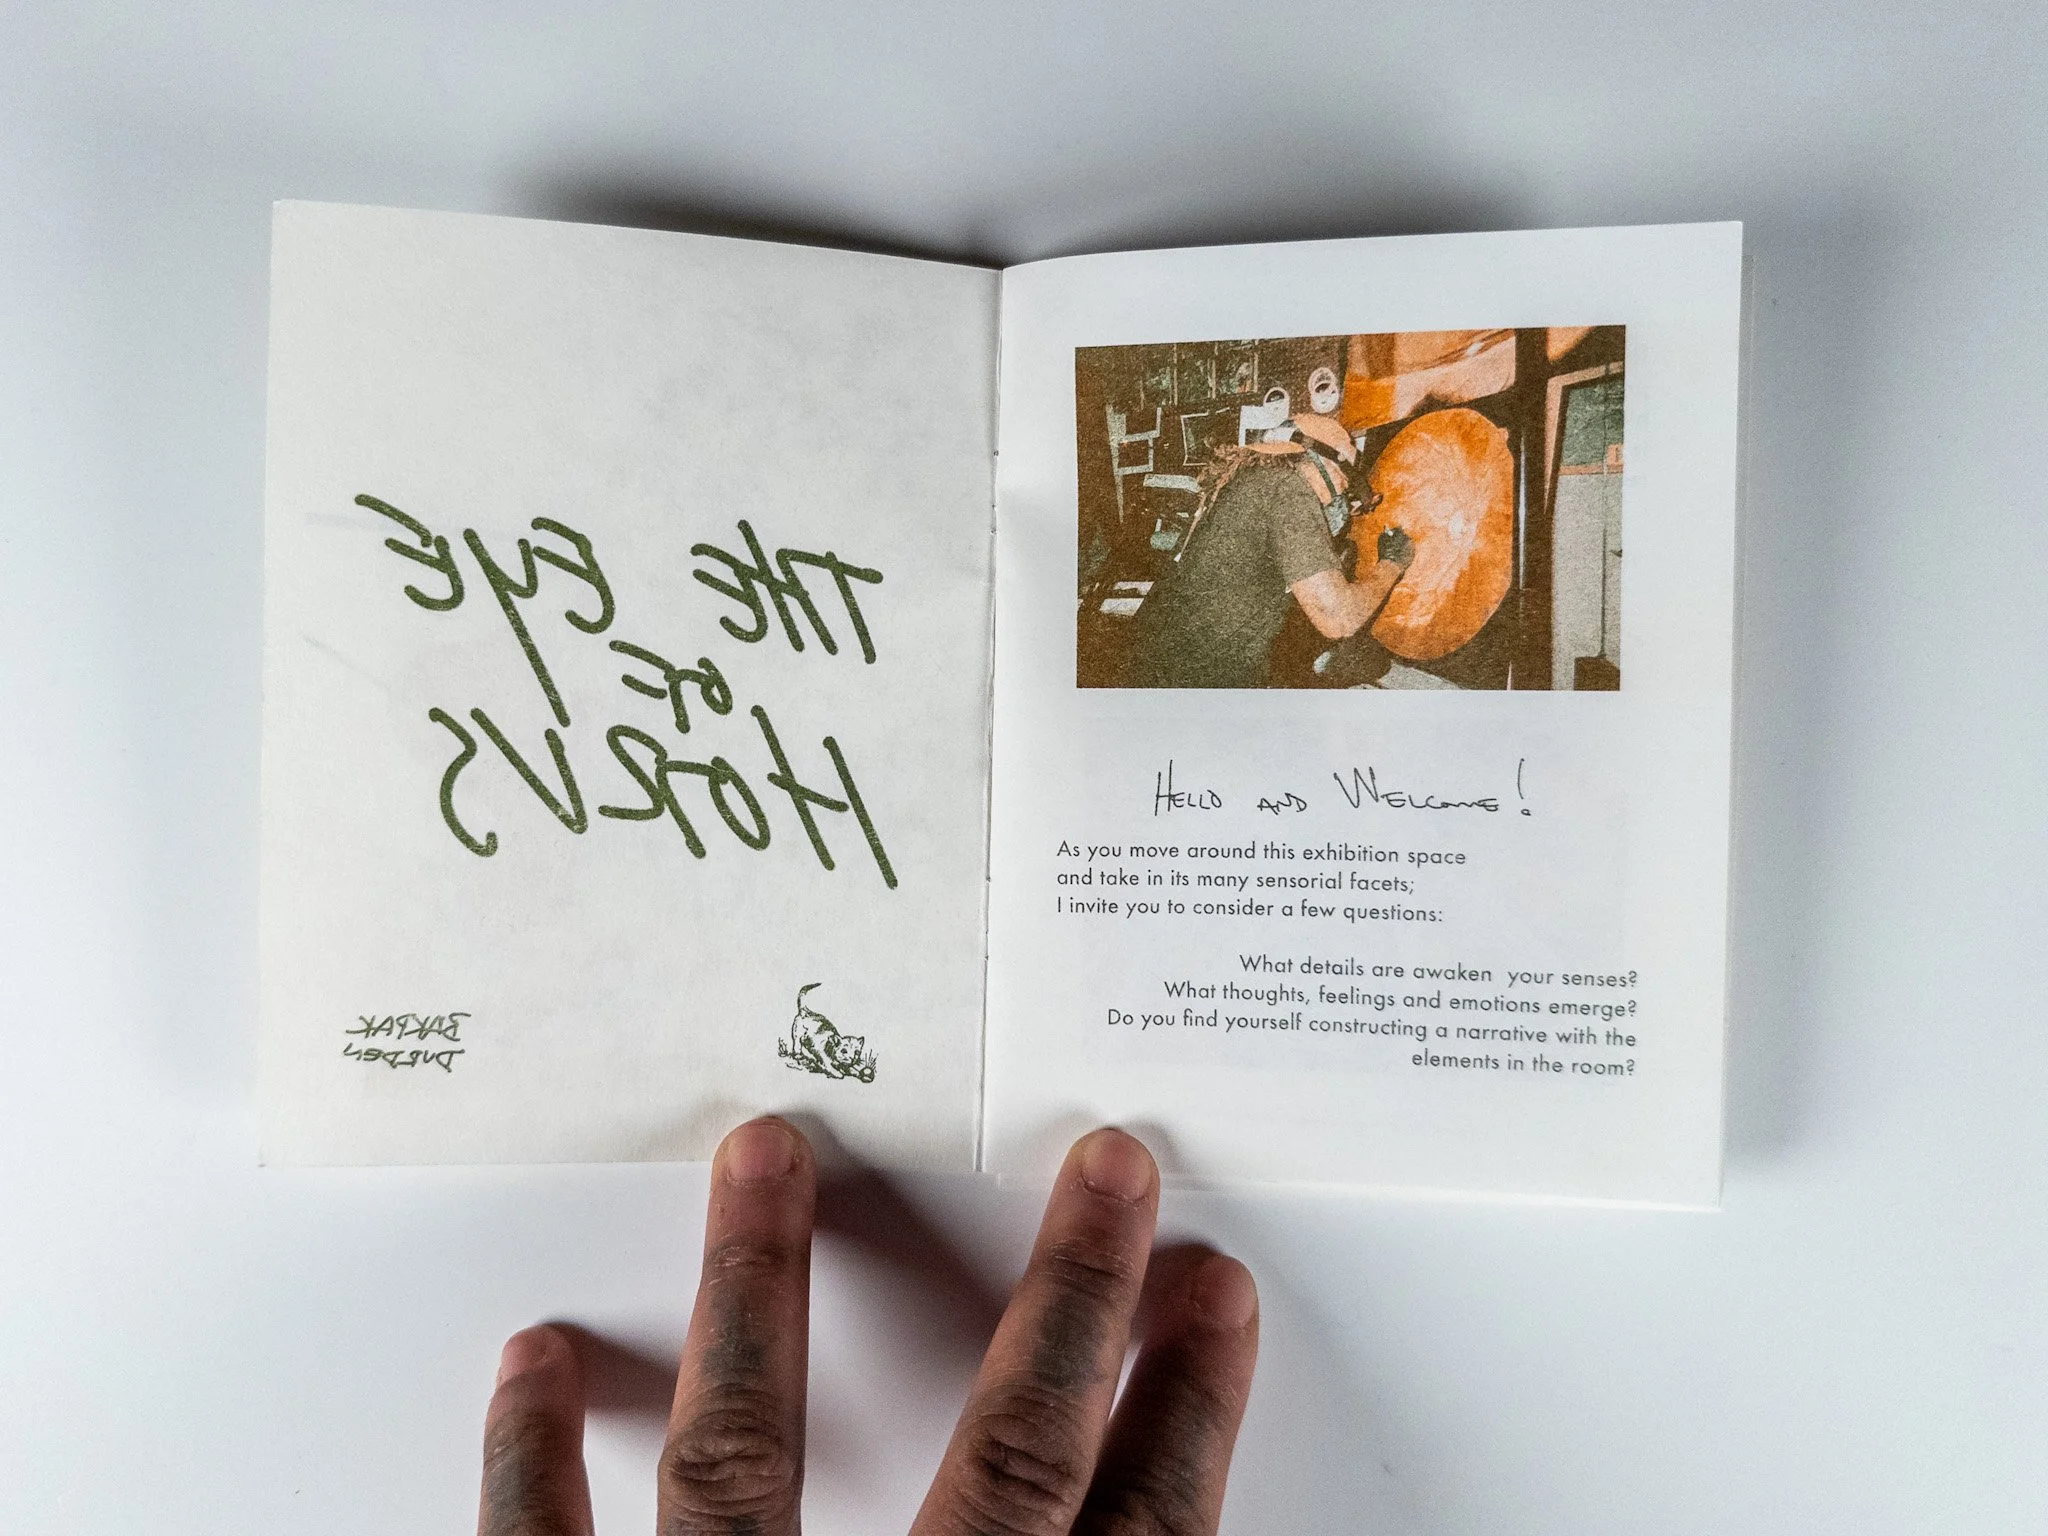 THE EYE
OF
HORUS
BAKPAK
DURDEN
HELLO AND WELCOME!
As you move around this exhibition space
and take in its many sensorial facets;
I invite you to consider a few questions:
What details are awaken your senses?
What thoughts, feelings and emotions emerge?
Do you find yourself constructing a narrative with the
elements in the room?